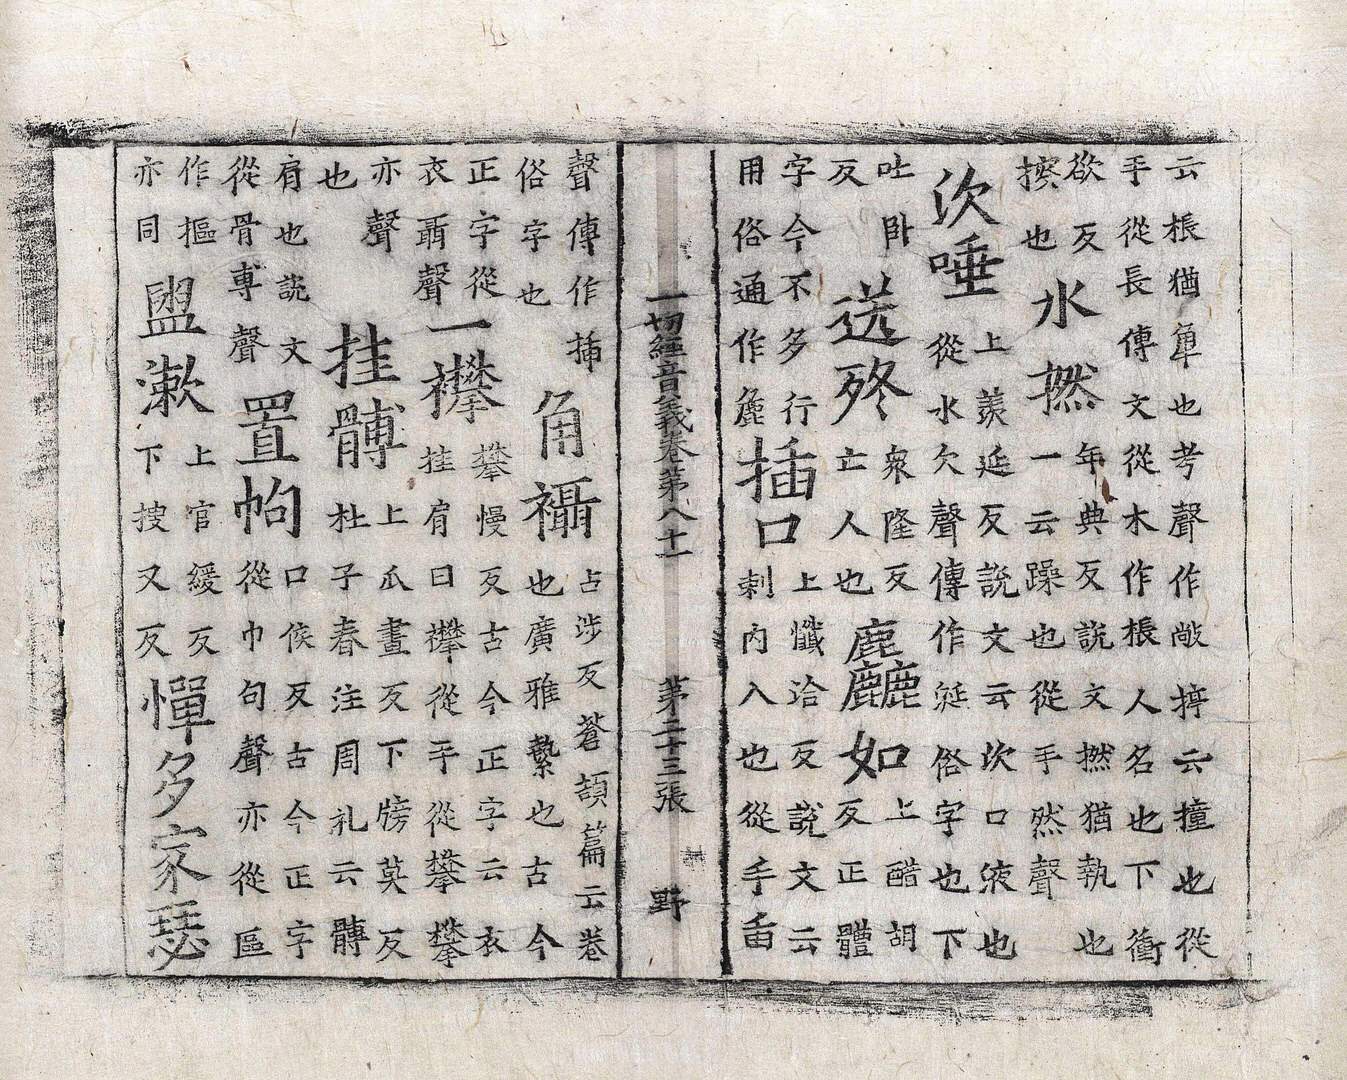 云棖猶𢾊也考聲作敞㨃云撞也從
手從長傳文從木作棖人名也下衝
欲反
年典反説文撚猶執也
㨎也
水撚
一云躁也從手然聲
㳄唾
上羨延反説文云㳄口液也
從水欠聲傳作涎俗字也下
吐卧
反
送終
衆隆反
亡人也
麤如
上醋胡
反正體
字今不多行
用俗通作麁
插口
上懺洽反説文云
刺内入也從手臿
一切經音義卷第八十一 第二十三張 野
聲傳作揷
俗字也
角襵
占涉反蒼頡篇云卷
也廣雅䋈也古今
正字從
衣聶聲
一襻
攀慢反古今正字云衣
挂肩曰襻從手從攀攀
亦聲
也
挂髆
上瓜畫反下牓莫反
杜子春注周礼云髆
肩也説文
從骨尃聲
置㡱
口候反古今正字
從巾句聲亦從區
作摳
亦同
盥漱
上官緩反
下搜又反
憚多家瑟